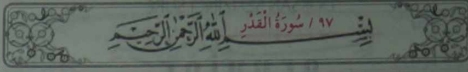 ٩٧ / سُورَةُ الْقَدْرِ
بِسْمِ اللَّهِ الرَّحْمَٰنِ الرَّحِيمِ